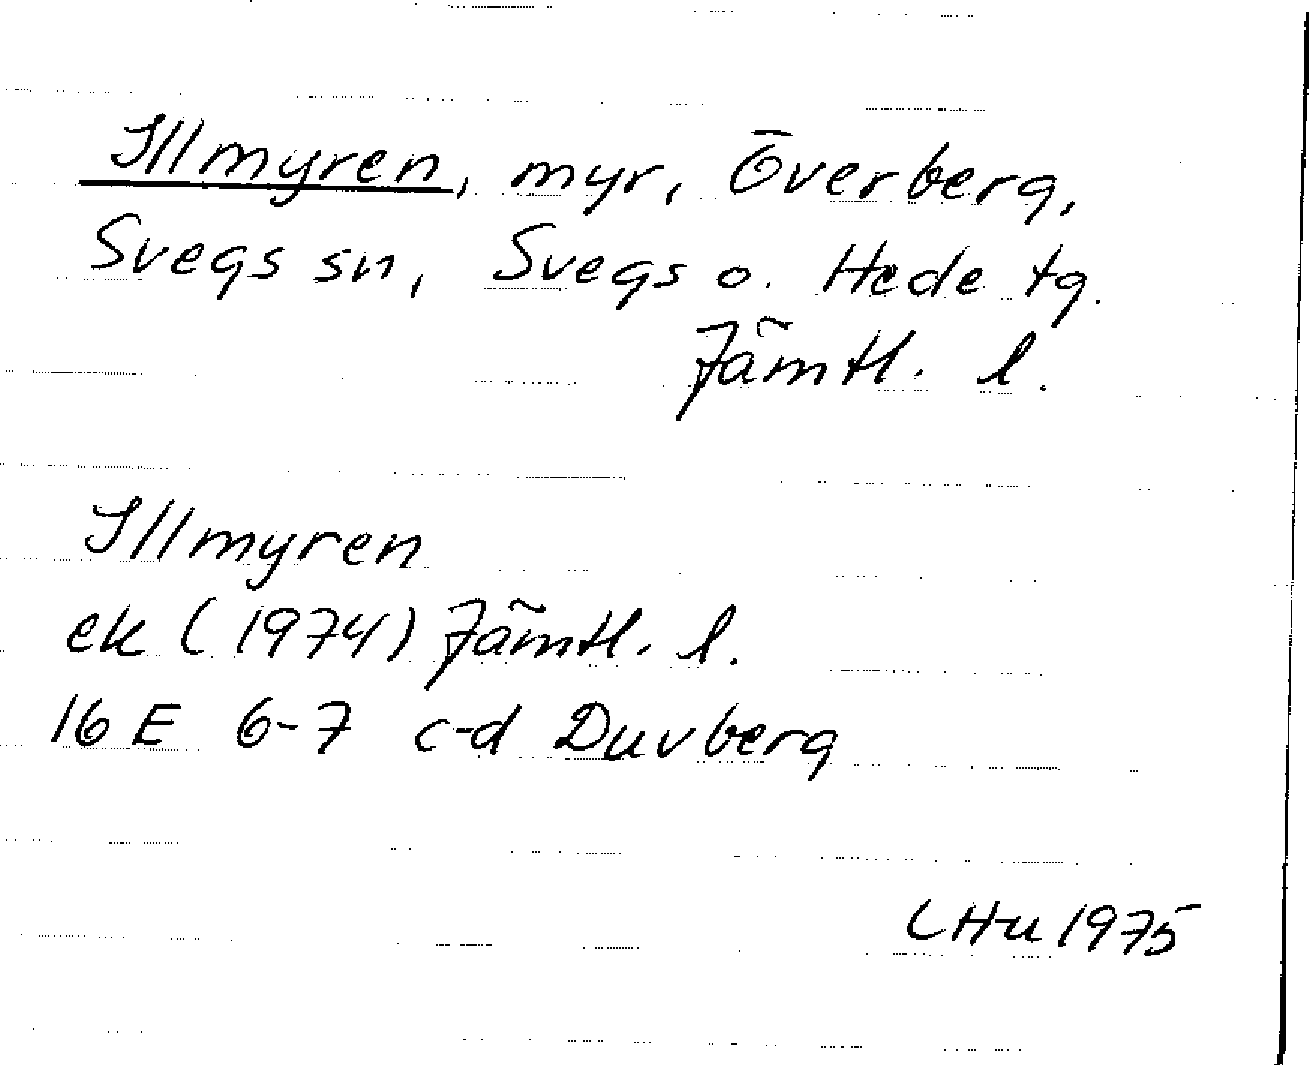 Illmyren, myr, Överberg,
Svegs sn, Svegs o. Hede tg.
Jämtl. l.
Illmyren
ek (1974) Jämtl. l.
16 E 6-7 c-d Duvberg
LHu 1975